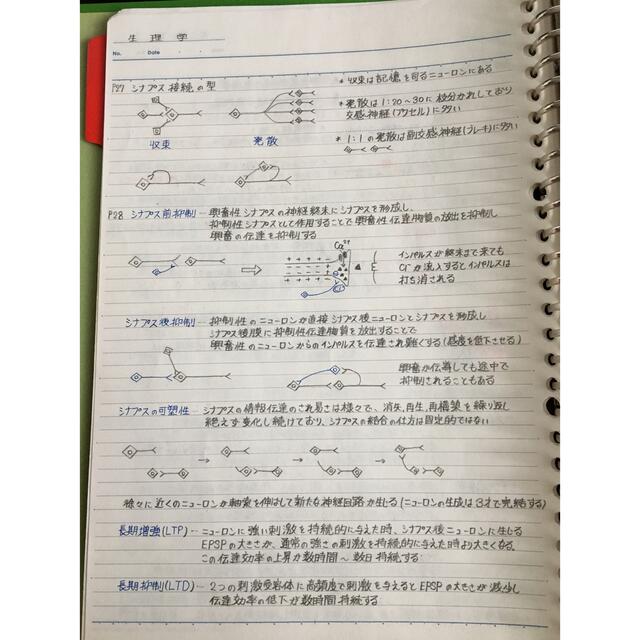 生理学
No. Date
P27 シナプス接続の型
* 収束は記憶を司るニューロンにある
* 発散は1:20~30に枝分かれしており
交感神経(アクセル)に多い
* 1:1の発散は副交感神経(ブレーキ)に多い
収束 発散
P28 シナプス前抑制… 興奮性シナプスの神経終末にシナプスを形成し、
抑制性シナプスとして作用することで興奮性伝達物質の放出を抑制し
興奮の伝達を抑制する
Ca²⁺
インパルスが終末まで来ても
Cl⁻が流入するとインパルスは
打ち消される
シナプス後抑制… 抑制性のニューロンが直接シナプス後ニューロンとシナプスを形成し
シナプス後膜に抑制性伝達物質を放出することで
興奮性のニューロンからのインパルスを伝達され難くする(感度を低下させる)
興奮が伝導しても途中で
抑制されることもある
シナプスの可塑性… シナプスの情報伝達のされ易さは様々で、消失,再生,再構築を繰り返し
絶えず変化し続けており、シナプスの結合の仕方は固定的ではない
様々に近くのニューロンが軸索を伸ばして新たな神経回路が生じる(ニューロンの生成は3才で完結する)
長期増強(LTP)… ニューロンに強い刺激を持続的に与えた時、シナプス後ニューロンに生じる
EPSPの大きさが、通常の強さの刺激を持続的に与えた時より大きくなる。
この伝達効率の上昇が数時間~数日持続する
長期抑制(LTD)… 2つの刺激受容体に高頻度で刺激を与えるとEPSPの大きさが減少し
伝達効率の低下が数時間持続する